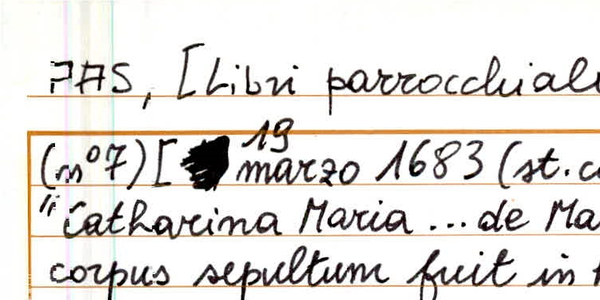 FAS, [Libri parrocchial
19
(n° 7) [ marzo 1683 (st. c
"Catharina Maria ... de Ma
corpus sepultum fuit in